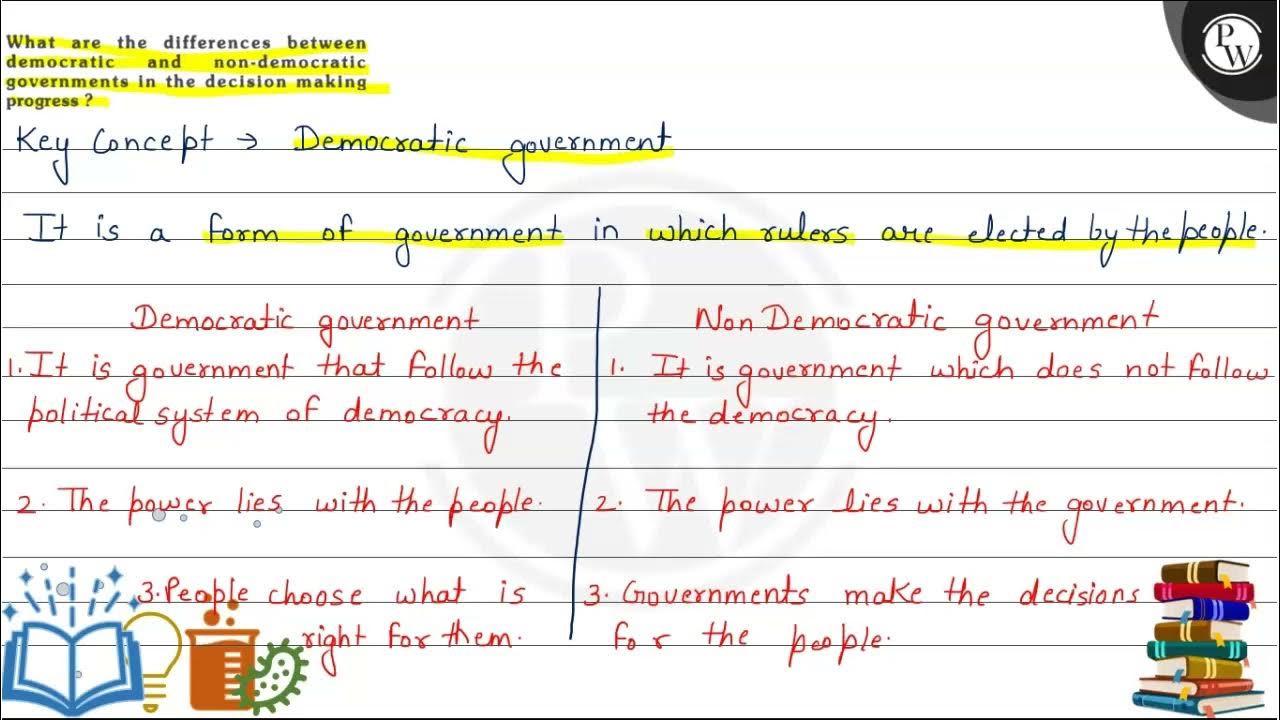 What are the differences between
democratic and non-democratic
governments in the decision making
progress ?
PW
Key Concept → Democratic government
It is a form of government in which rulers are elected by the people.
Democratic government
1. It is government that follow the
political system of democracy.
2. The power lies with the people.
3. People choose what is
right for them.
Non Democratic government
1. It is government which does not follow
the democracy.
2. The power lies with the government.
3. Governments make the decisions
for the people.
PW